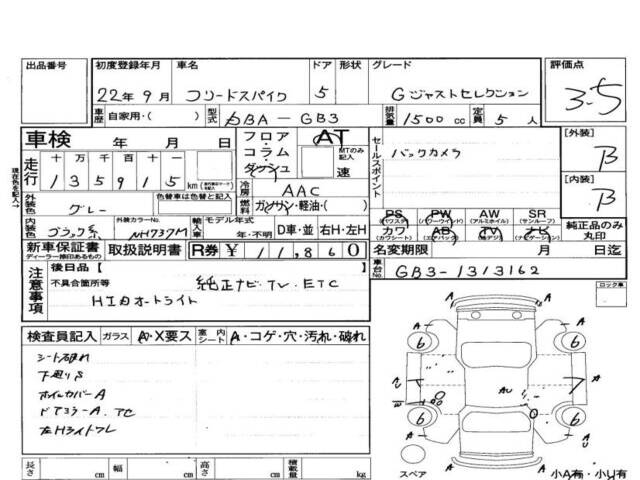 出品番号 初度登録年月 車名 ドア 形状 グレード 評価点
22年9月 フリードスパイク 5 Gジャストセレクション 3.5
車歴 自家用・( ) 型式 DBA-GB3 排気量 1500cc 定員 5人
車検 年 月 日 フロア・コラム・ダッシュ AT MTのみ記入 速 セールスポイント バックカメラ [外装] B
走行 十万千百十一 135915km [内装] B
現在色を記入→
冷房 AAC
外装色 グレー 色替車は色替と記入 燃料 ガソリン・軽油・( )
PS (パワステ) PW (パワーウインド) AW (アルミホイル) SR (サンルーフ) 純正品のみ丸印
内装色 ブラック系 外装カラーNo. NH737M 輸入車 モデル年式 年・不明 D車・並 右H・左H
カワ (カワシート) AB (エアバック) TV ナビ (ナビゲーション)
新車保証書 ディーラー捺印あるもの 取扱説明書 R券 ¥11,860 名変期限 月 日迄
注意事項 後日品[ ] 車台No. GB3-1313162
不具合箇所等 純正ナビ・TV・ETC ロック車
HIDオートライト
検査員記入 ガラス A・X要ス 室内シート A・コゲ・穴・汚れ・破れ
シート破れ
下廻りS
ホイルカバーA
左Hライト
6 6
AU
6 6
長さ cm 幅 cm 高さ cm 積載量 kg スペア 小A有・小U有